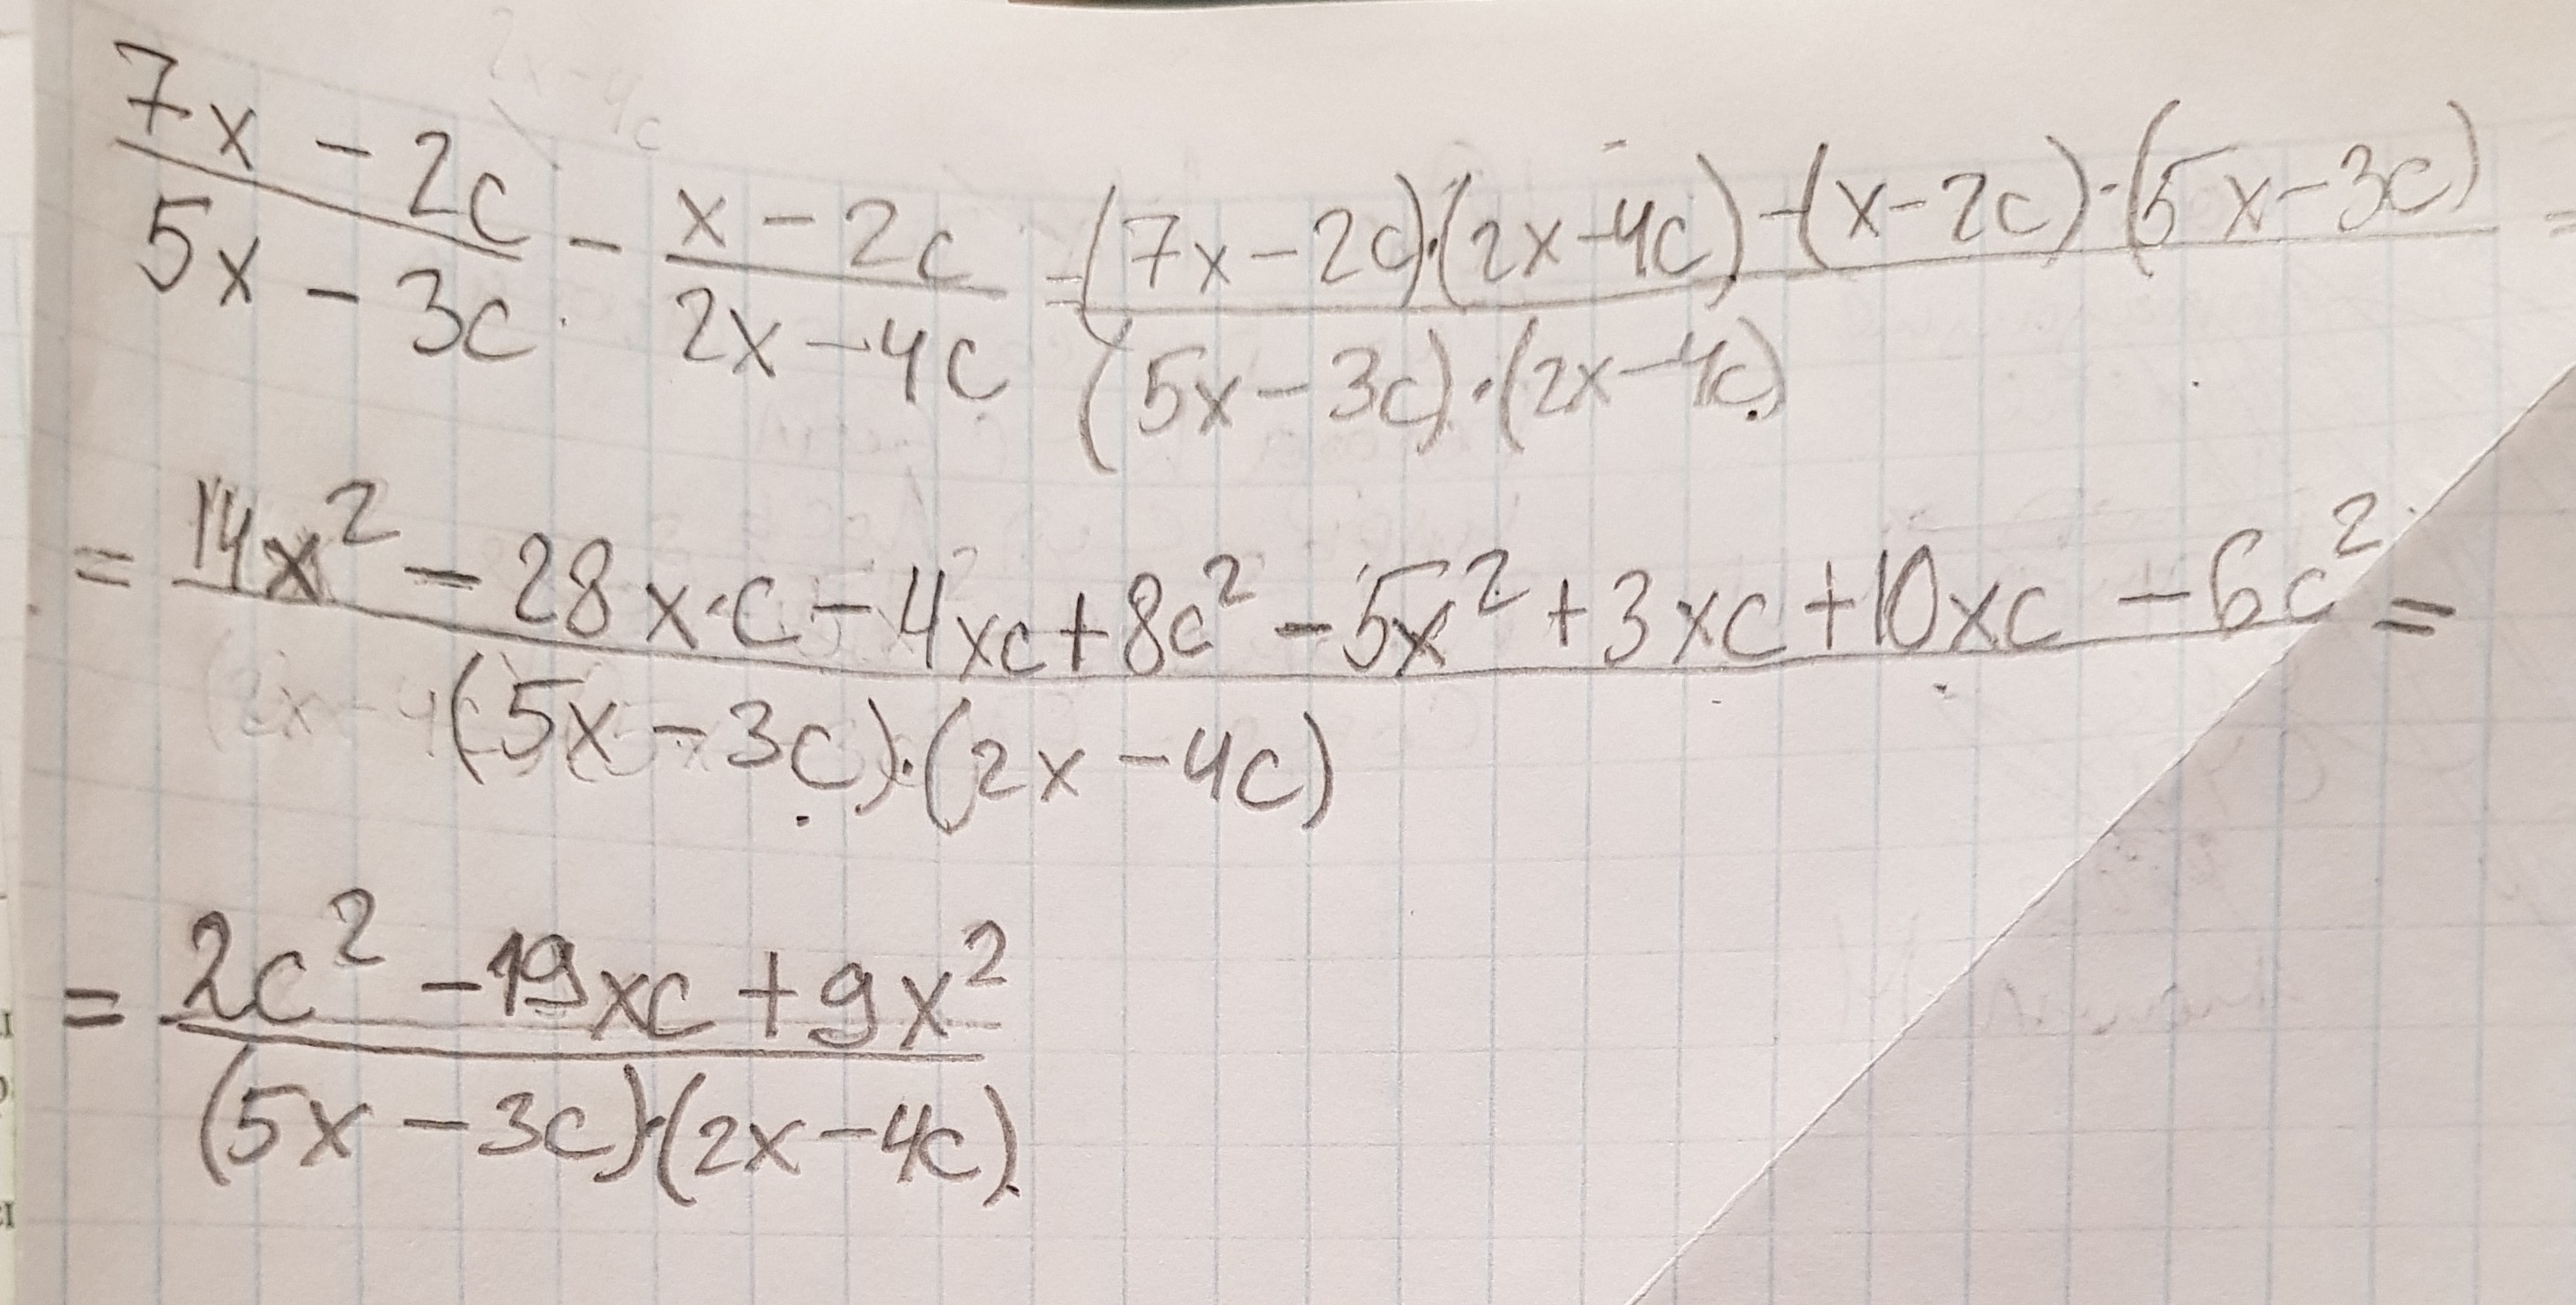 (7x - 2c)/(5x - 3c) - (x - 2c)/(2x - 4c) = ((7x - 2c)·(2x - 4c) - (x - 2c)·(5x - 3c))/((5x - 3c)·(2x - 4c)) =
= (14x² - 28x·c - 4xc + 8c² - 5x² + 3xc + 10xc - 6c²)/((5x - 3c)·(2x - 4c)) =
= (2c² - 19xc + 9x²)/((5x - 3c)·(2x - 4c))